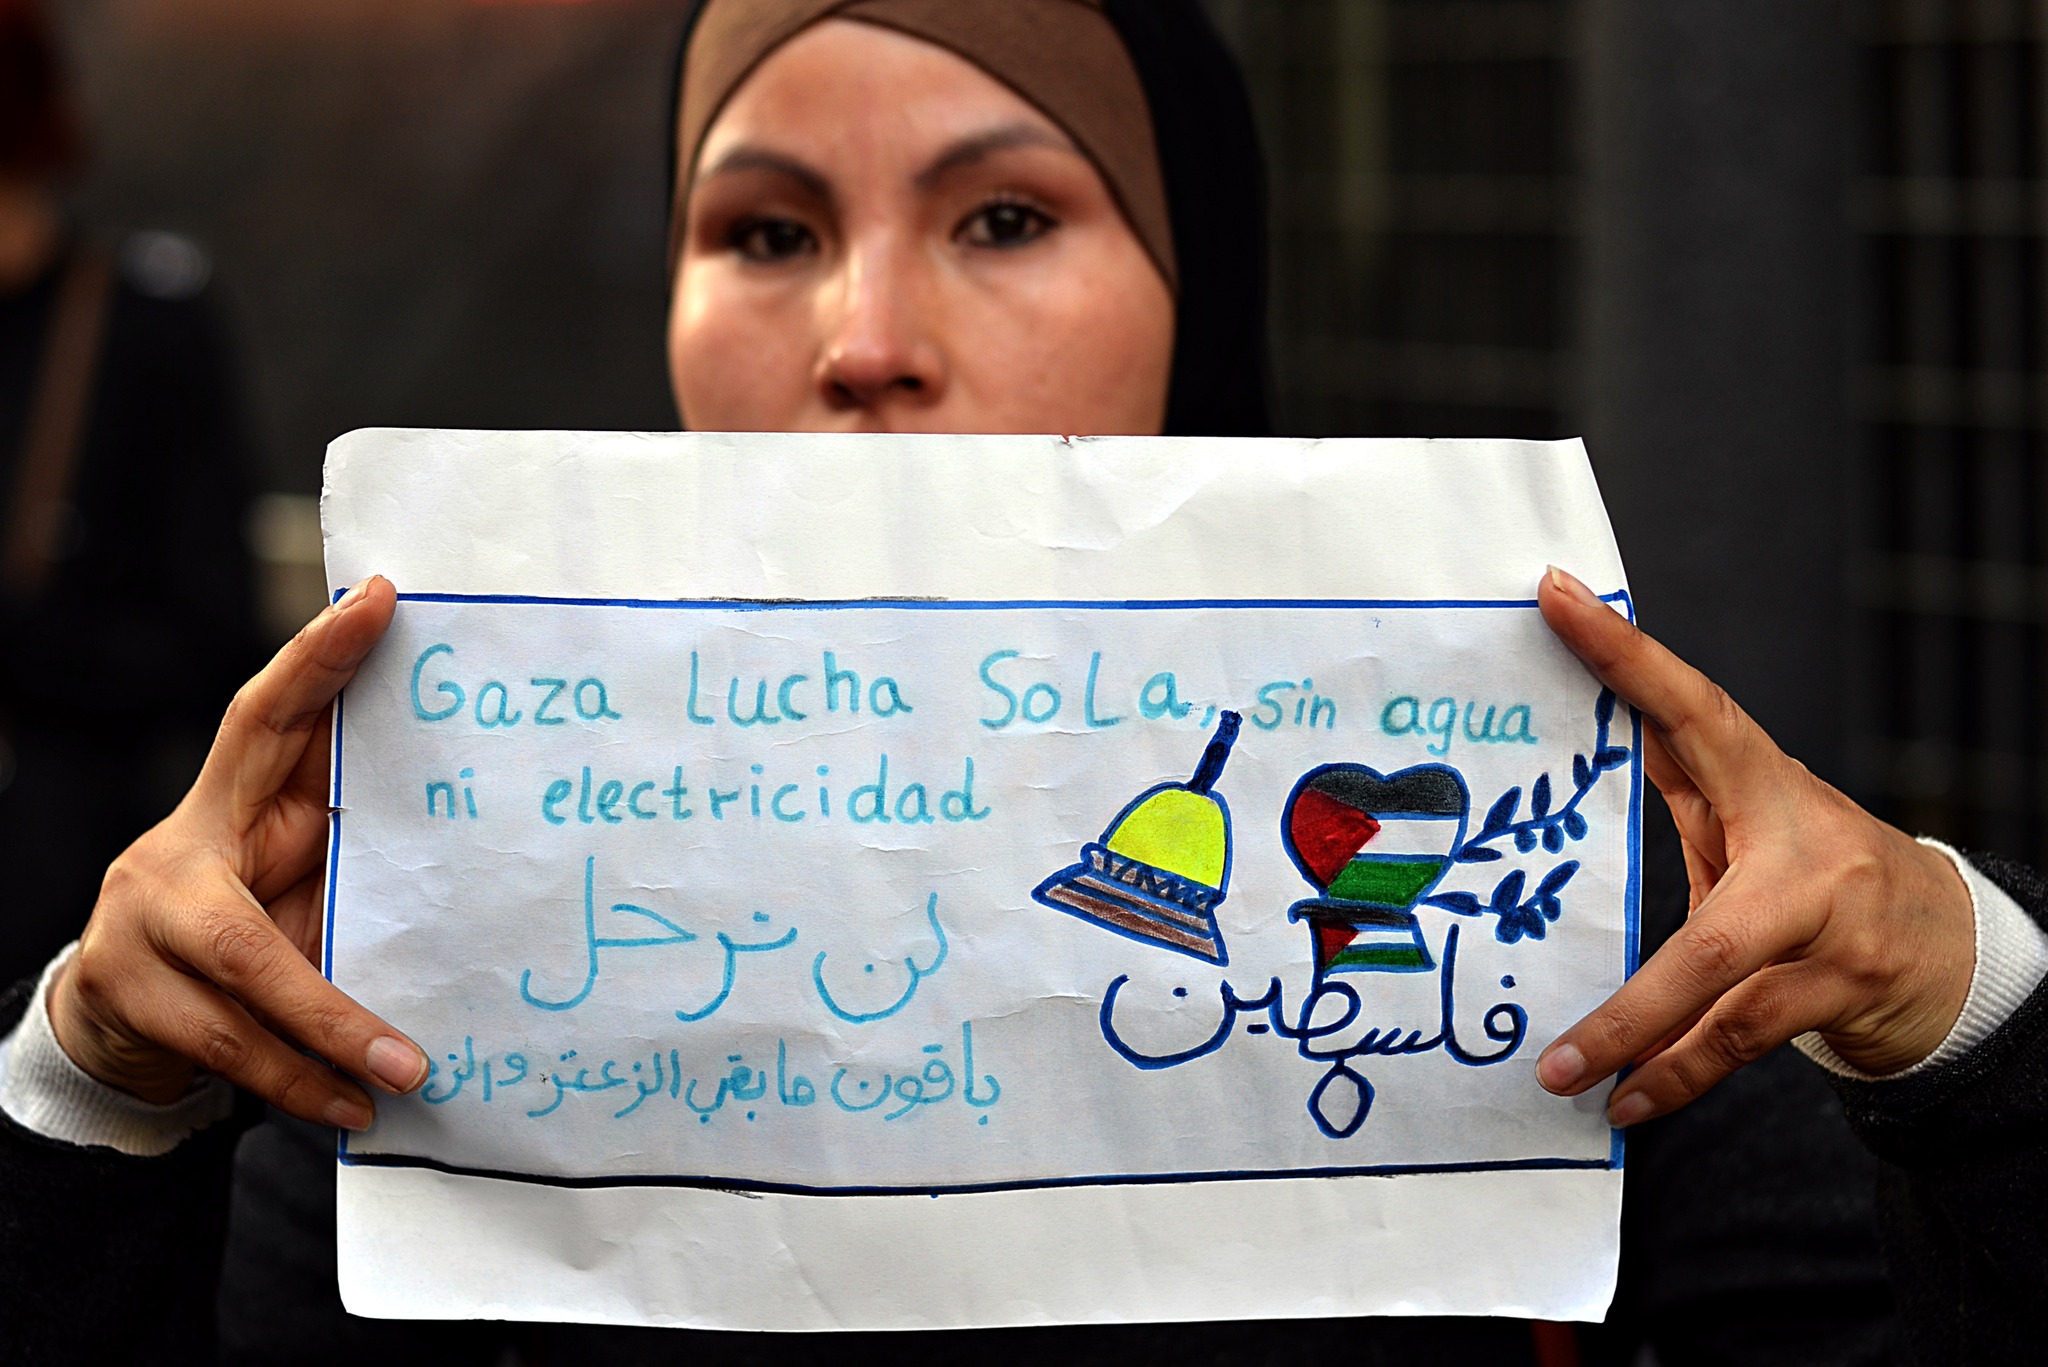 Gaza Lucha SoLa, sin agua
ni electricidad
لن نرحل
باقون ما بقي الزعتر
فلسطين